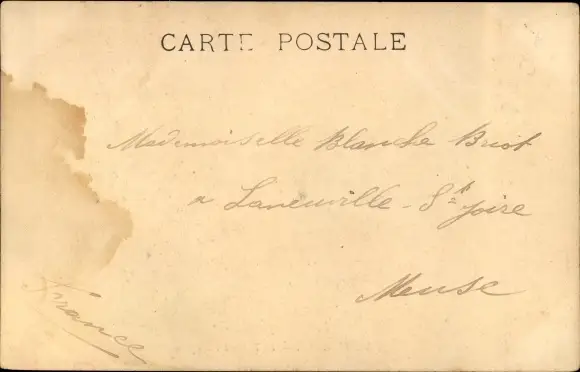 CARTE POSTALE
Mademoiselle Blanche Briot
a Laneuville - St Joire
Meuse
France